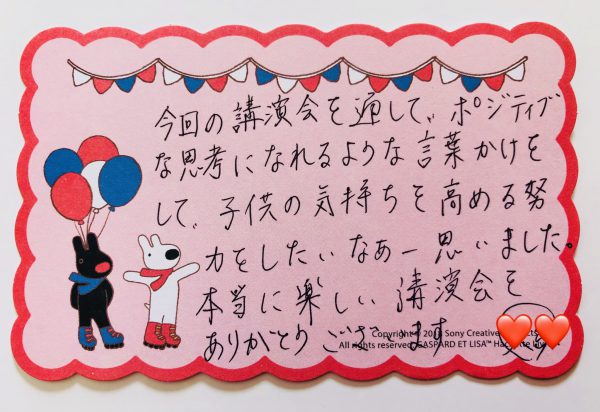 今回の講演会を通して、ポジティブ
な思考になれるような言葉かけを
して、子供の気持ちを高める努
力をしたいなあー思いました。
本当に楽しい講演会を
ありがとうございます
Copyright© Sony Creative
All rights reserved. GASPARD ET LISA™